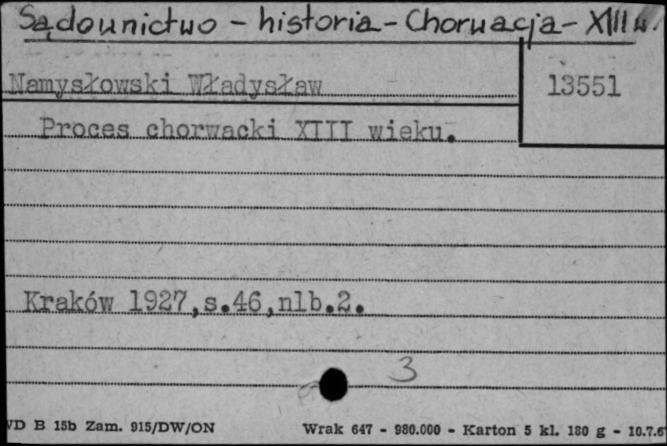 Sądownictwo - historia - Chorwacja - XIII w.
Namysłowski Władysław
13551
Proces chorwacki XIII wieku.
Kraków 1927,s.46,nlb.2.
3
WD B 15b Zam. 915/DW/ON
Wrak 647 - 980.000 - Karton 5 kl. 180 g - 10.7.6